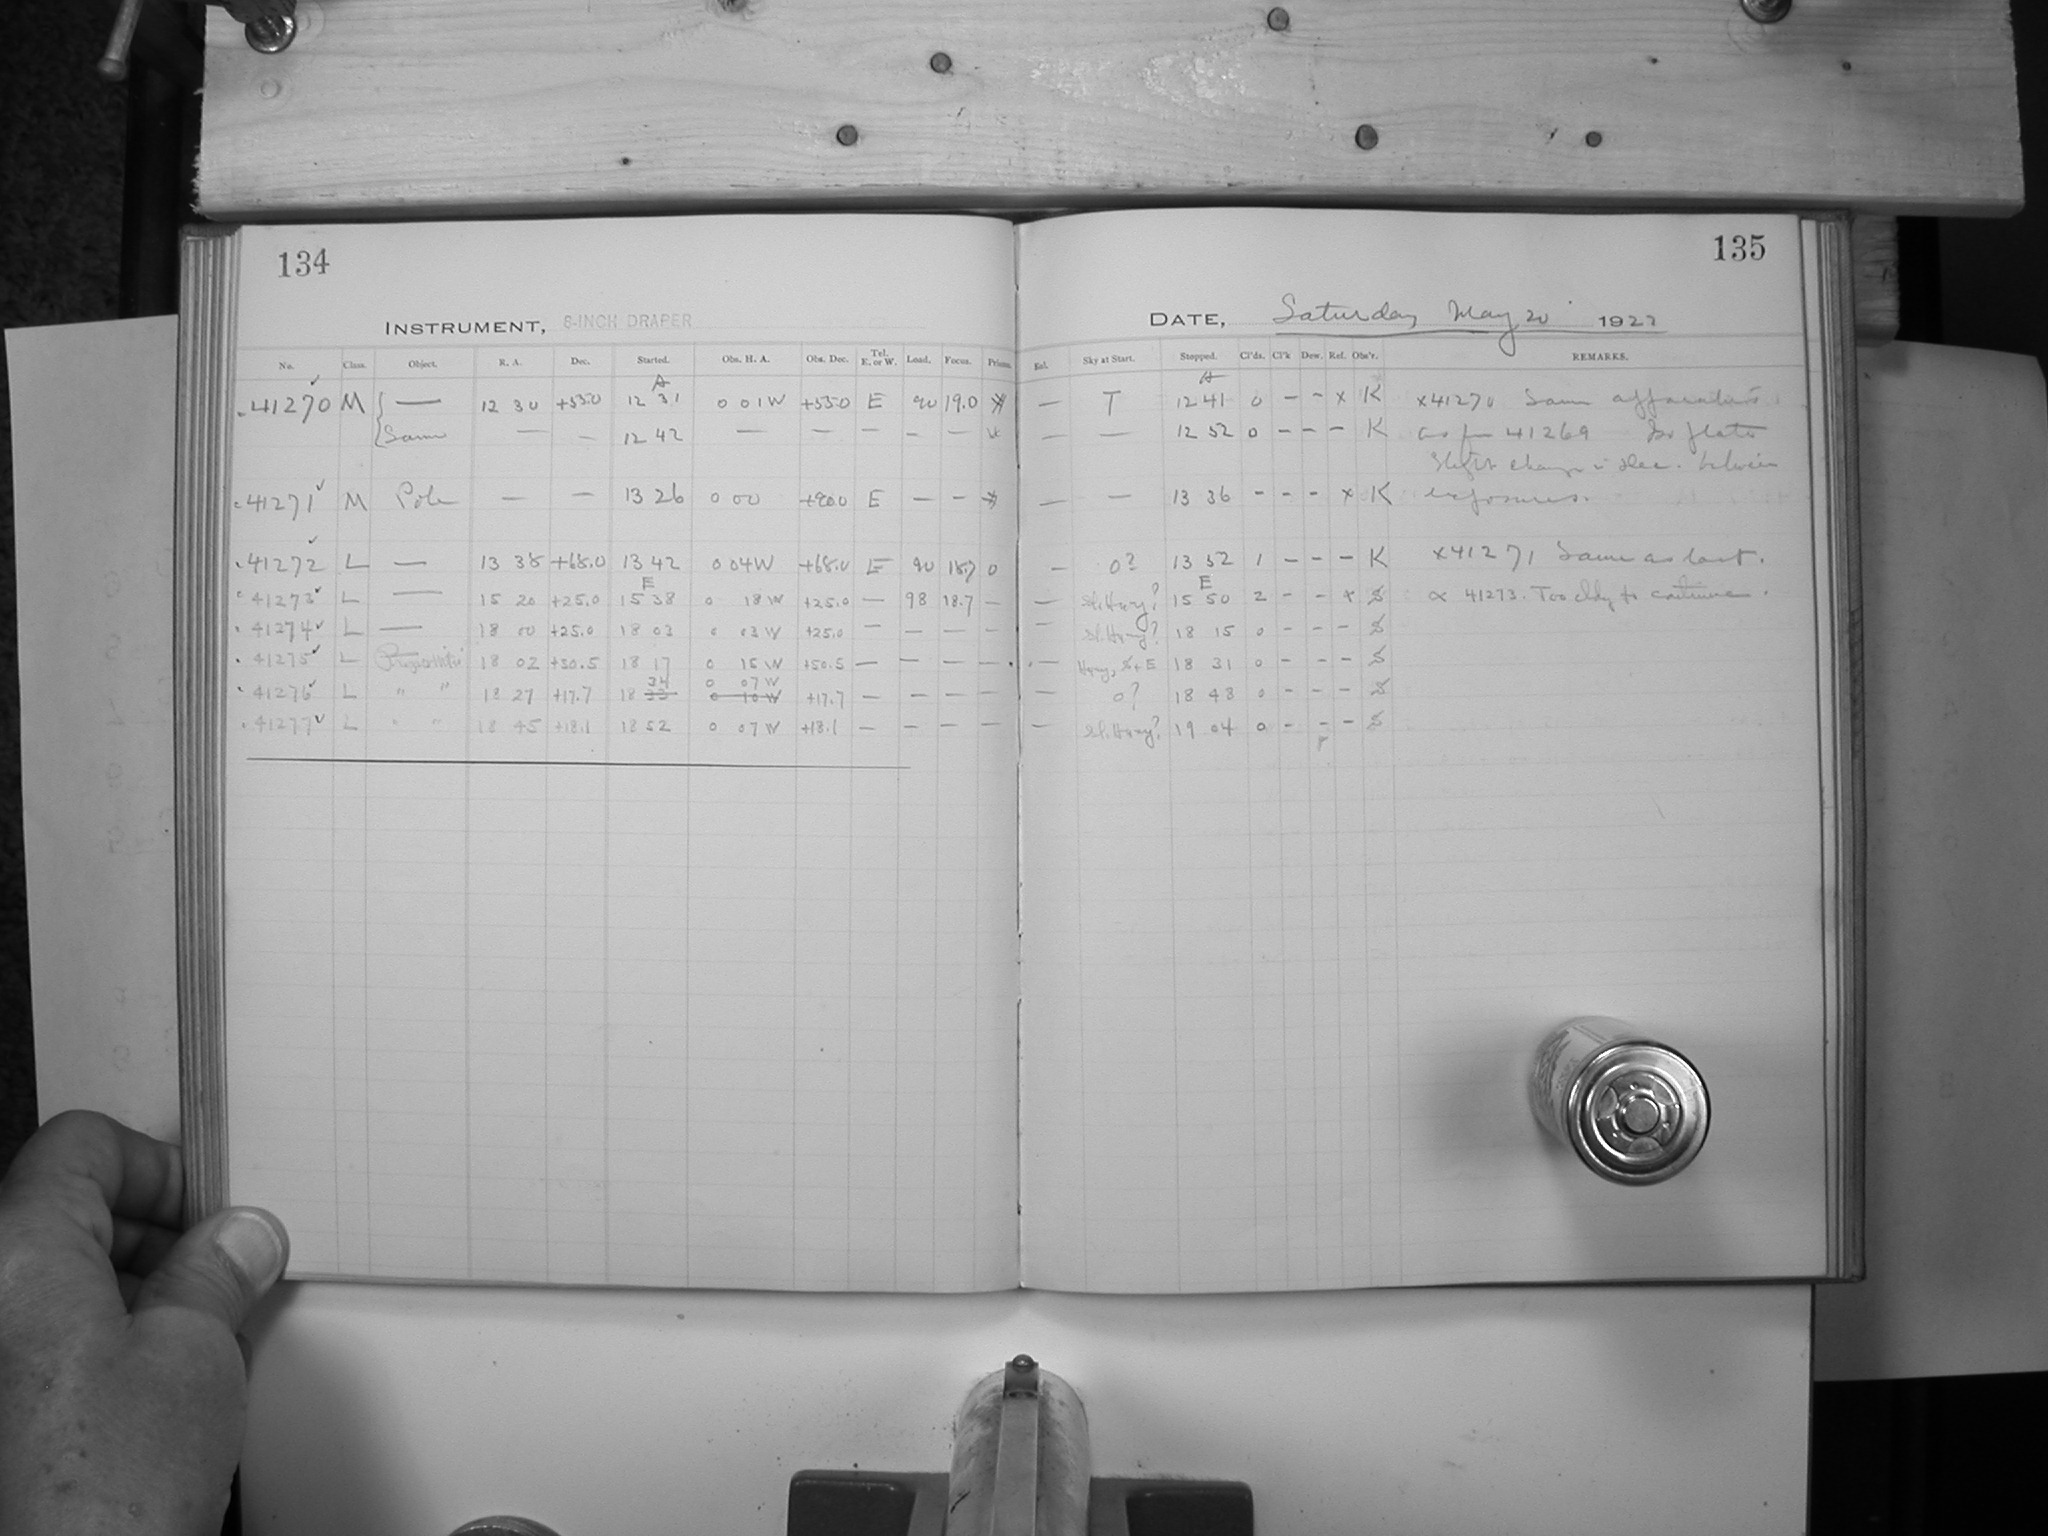 134
INSTRUMENT, 8-INCH DRAPER
No. Class. Object. R. A. Dec. Started. Obs. H. A. Obs. Dec. Tel. E. or W. Load. Focus. Prisms.
41270 M — 12 30 +53.0 A 12 31 0 01W +53.0 E 90 19.0
Same — — 12 42 — — — — —
41271 M Pole — — 13 26 0 00 +90.0 E — —
41272 L — 13 38 +68.0 13 42 0 04W +68.0 E 90 18.7 0
41273 L — 15 20 +25.0 E 15 38 0 18W +25.0 — 98 18.7 —
41274 L — 18 00 +25.0 18 03 0 03W +25.0 — — — —
41275 L 18 02 18 17 0 15W +50.5 — — — —
41276 L " " 18 27 +17.7 18 34 0 07W +17.7 — — — —
41277 L " " 18 45 +18.1 18 52 0 07W +18.1 — — — —
135
DATE, Saturday May 20 1922
Sky at Start. Stopped. Cl'ds. Cl'k Dew. Ref. Obs'r. REMARKS.
— T A 12 41 0 – – x K x41270 Same
— — 12 52 0 – – – K as for 41269
slight change in Dec. between
— — 13 36 – – – x K exposures.
– 0? 13 52 1 – – – K x41271 Same as last.
— Sl. Hazy? E 15 50 2 – – x S x 41273. Too cldy to continue.
– Sl. Hazy? 18 15 0 – – – S
— Hazy, 18 31 0 – – – S
— 0? 18 48 0 – – – S
— Sl. Hazy? 19 04 0 – – – S